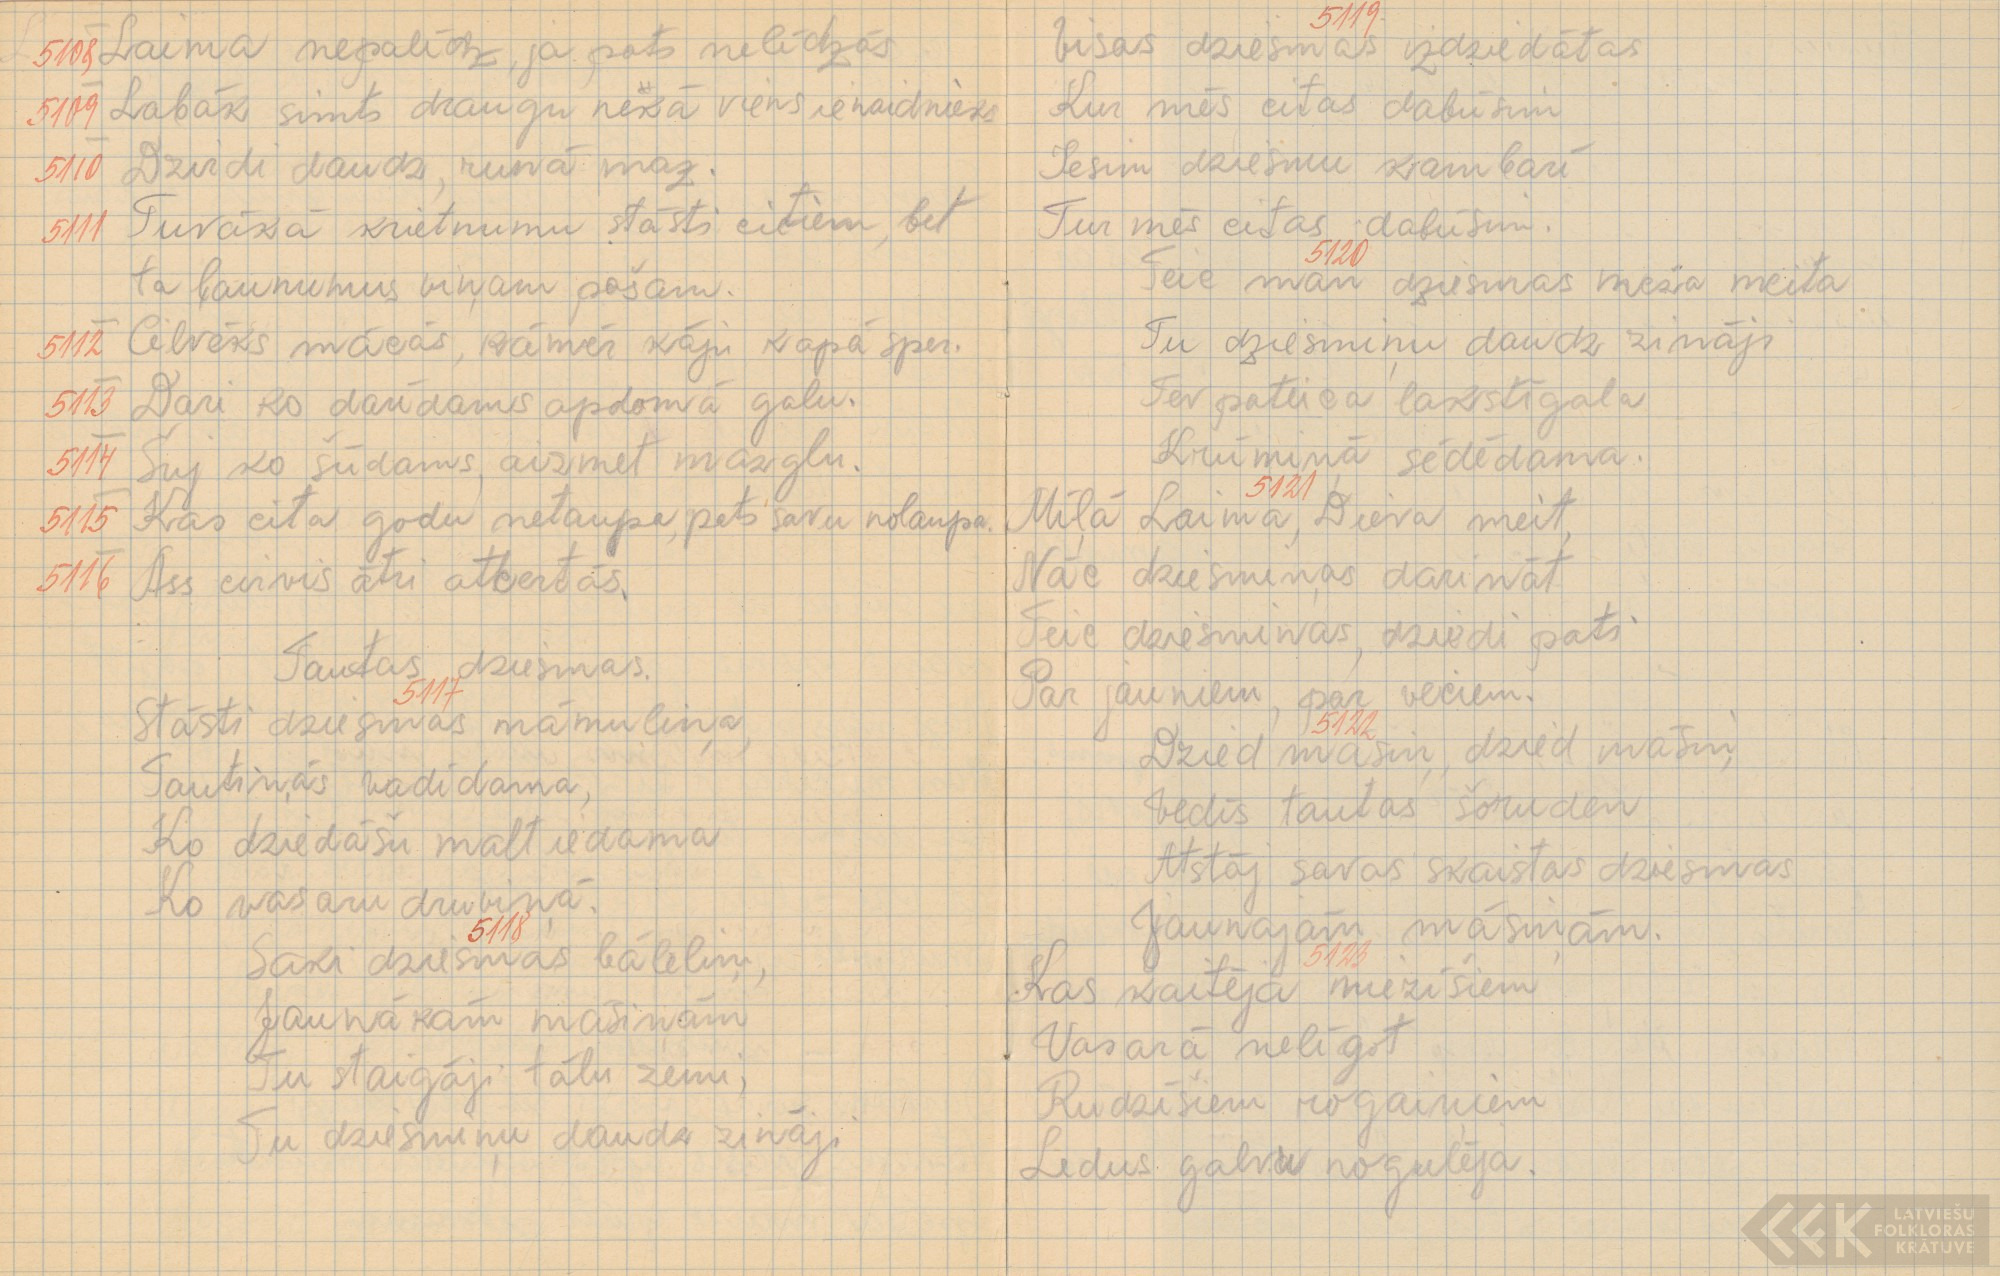 5108 Laima nepalīdz, ja pats nelīdzās
5109 Labāk simts draugu nekā viens ienaidnieks
5110 Dzirdi daudz, runā maz.
5111 Tuvākā krietnumu stāsti citiem, bet
ta ļaunumus viņam pašam.
5112 Cilvēks mācās, kāmēr kāju kapā sper.
5113 Dari ko darīdams apdomā galu.
5114 Šuj ko šūdams, aizmet mazglu.
5115 Kas cita godu netaupa, pats savu nolaupa.
5116 Ass cirvis ātri atcertās.
Tautas dziesmas.
5117
Stāsti dziesmas māmuliņa,
Tautiņās vadīdama,
Ko dziedāšu malt iedama
Ko vasaru druviņā.
5118
Saki dziesmas bāleliņ,
Jaunākām māsiņām
Tu staigāji tālu zemi,
Tu dziesmiņu daudz zināji
5119
Visas dziesmas izdziedātas
Kur mēs citas dabūsim
Iesim dziesmu kambarī
Tur mēs citas dabūsim.
5120
Teic man dziesmas meža meita
Tu dziesmiņu daudz zināji
Tev pateica lakstīgala
Krūmiņā sēdēdama.
5121
Mīļā Laima, Dieva meit,
Nāc dziesmiņas darināt
Teic dziesmiņas, dziedi pati
Par jauniem, par veciem.
5122
Dzied māsiņ, dzied māsiņ,
Vedīs tautas šoruden
Atstāj savas skaistas dziesmas
Jaunajām māsiņām.
5123
Kas kaitēja miezīšiem
Vasarā nelīgot
Rudzīšiem rogaiņiem
Ledus galvu nogulēja.
LATVIEŠU
FOLKLORAS
KRĀTUVE